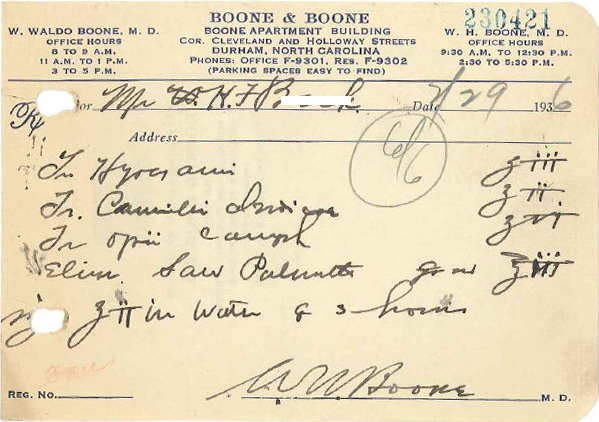 BOONE & BOONE
230421
W. WALDO BOONE, M. D.
OFFICE HOURS
8 TO 9 A.M.
11 A.M. TO 1 P.M.
3 TO 5 P.M.
BOONE APARTMENT BUILDING
COR. CLEVELAND AND HOLLOWAY STREETS
DURHAM, NORTH CAROLINA
PHONES: OFFICE F-9301, RES. F-9302
(PARKING SPACES EASY TO FIND)
W. H. BOONE, M. D.
OFFICE HOURS
9:30 A.M. TO 12:30 P.M.
2:30 TO 5:30 P.M.
for Mr H. F. Date /29 1936
Rx
Address
Tr Hyosciami ʒiii
Tr. Cannabis Indica ʒii
Tr opii camph ʒvi
Elixir Saw Palmetto ʒiii
ʒii in water q 3 hours
W W Boone M. D.
REG. NO.